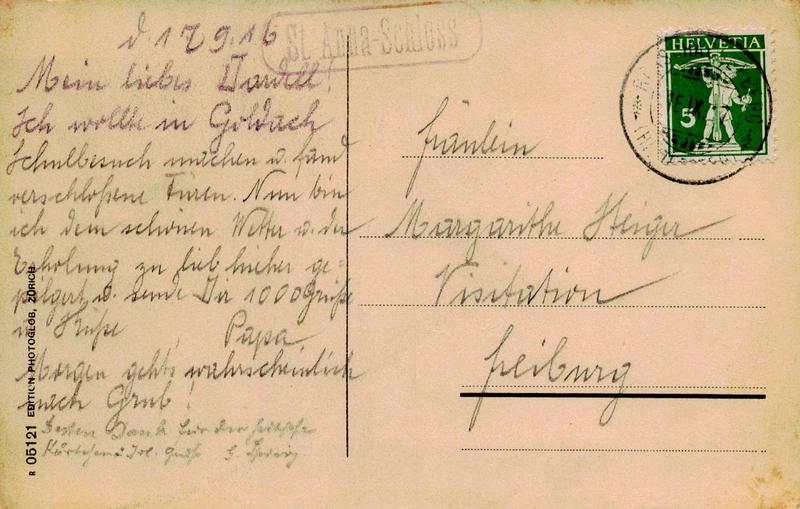 d. 17.9.16
St. Anna-Schloss
Mein liebes
Ich wollte in Goldach
Schulbesuch machen u. fand
verschloßene Türen. Nun bin
ich dem schönen Wetter u. der
Erholung zu lieb hieher ge=
pilgert u. sende Dir 1000 Grüße
u. Küße
Papa
Morgen gehts wahrscheinlich
nach Grub!
Besten Dank
HELVETIA
5
Fräulein
Margarithe Steiger
Visitation
Freiburg
R 05121 EDITION PHOTOGLOB, ZÜRICH